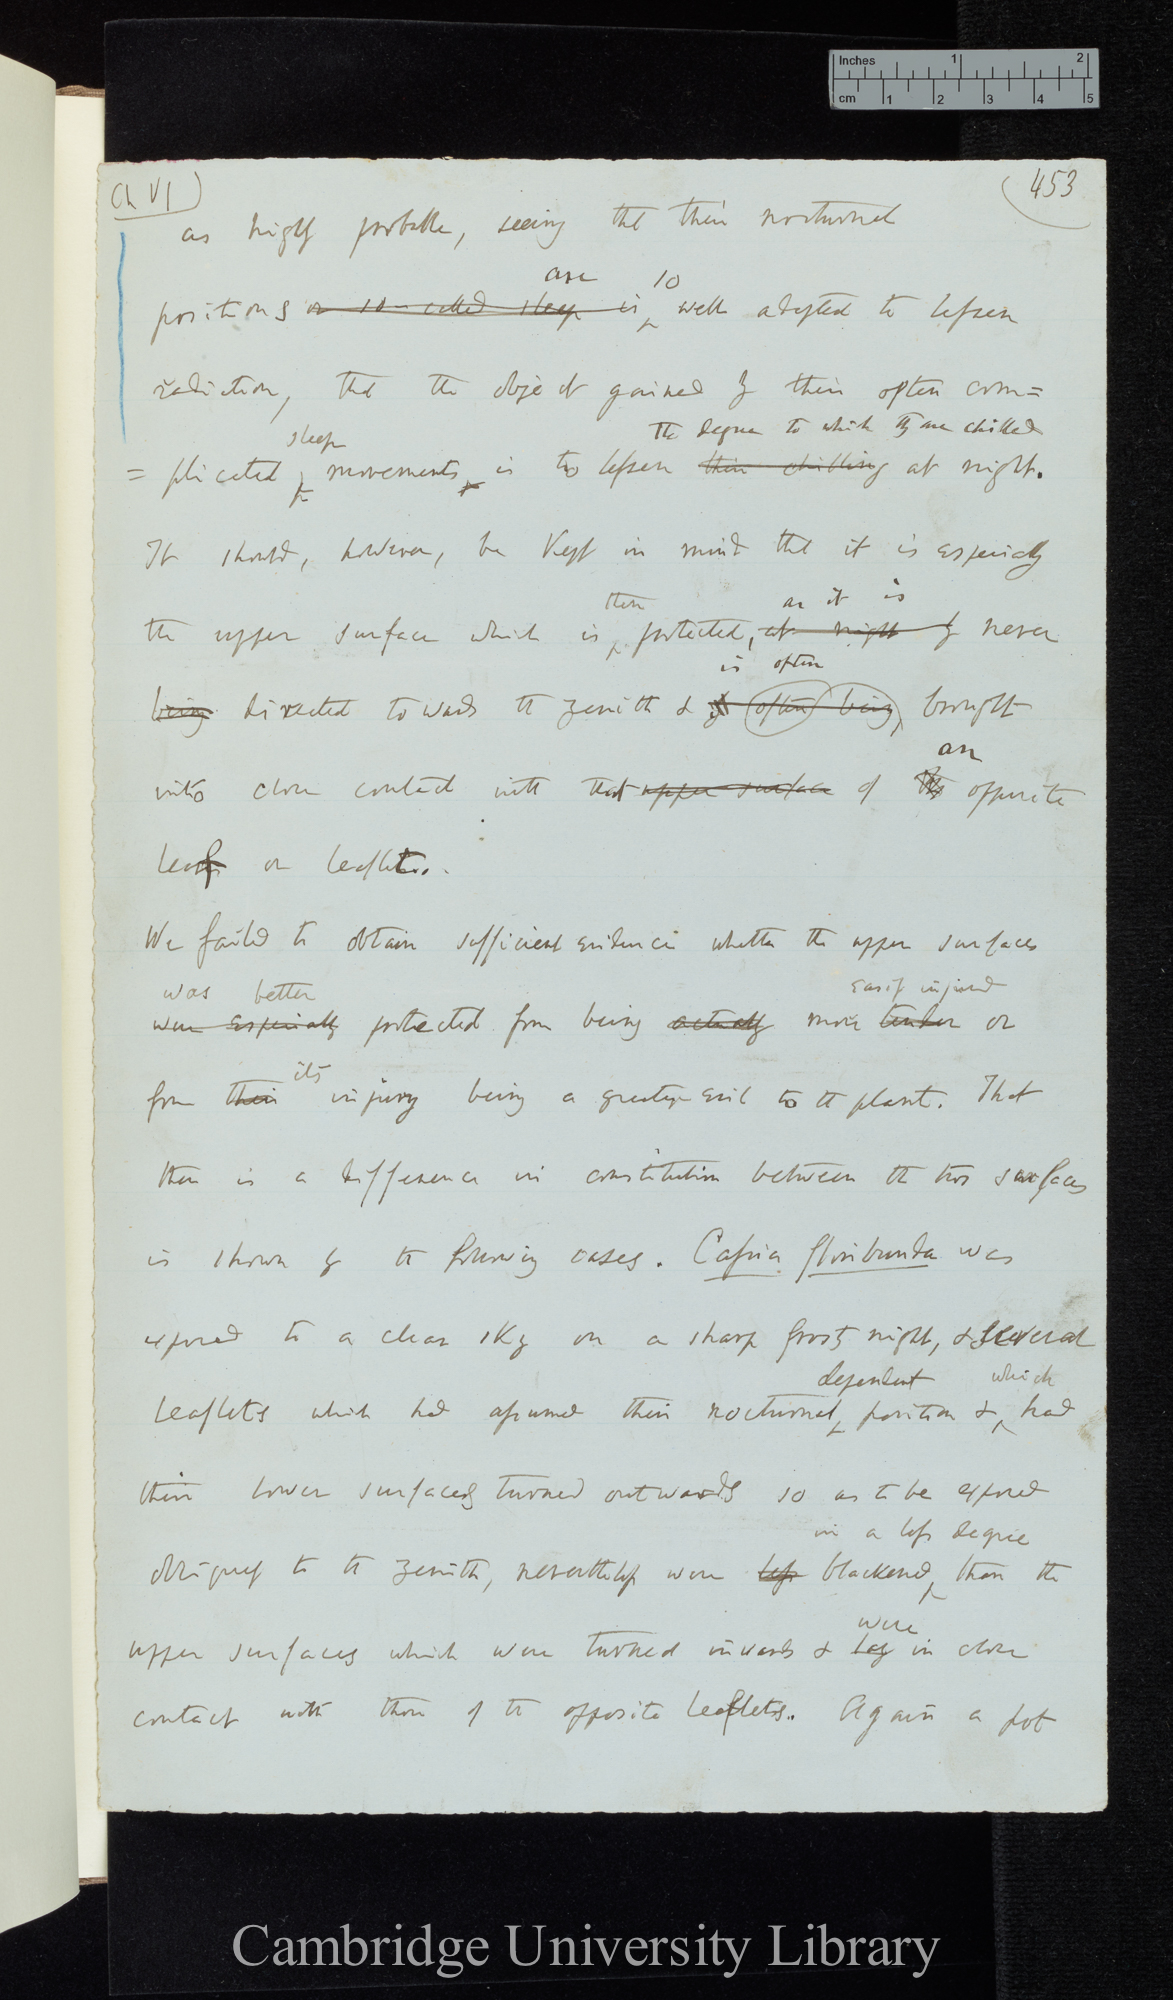 Inches 1 2
cm 1 2 3 4 5
Ch VI) (453
as highly probable, seeing that their nocturnal
are so
positions or so-called sleep is well adapted to lessen
radiation, that the object gained by their often com=
sleep the degree to which they are chilled
=plicated movements, is to lessen their chilling at night.
It should, however, be kept in mind that it is especially
thus as it is
the upper surface which is protected, at night by never
is often
being directed towards the zenith & by often being brought
an
into close contact with that upper surface of the opposite
leaf or leaflet.
We failed to obtain sufficient evidence whether the upper surfaces
was better easily injured
were especially protected from being actually more tender or
its
from their injury being a greater evil to the plant. That
there is a difference in constitution between the two surfaces
is shown by the following cases. Cassia floribunda was
exposed to a clear sky on a sharp frosty night, & several
dependent which
leaflets which had assumed their nocturnal position & had
their lower surfaces turned outwards so as to be exposed
in a less degree
obliquely to the zenith, nevertheless were less blackened than the
were
upper surfaces which were turned inwards & lay in close
contact with those of the opposite leaflets. Again a pot
Cambridge University Library